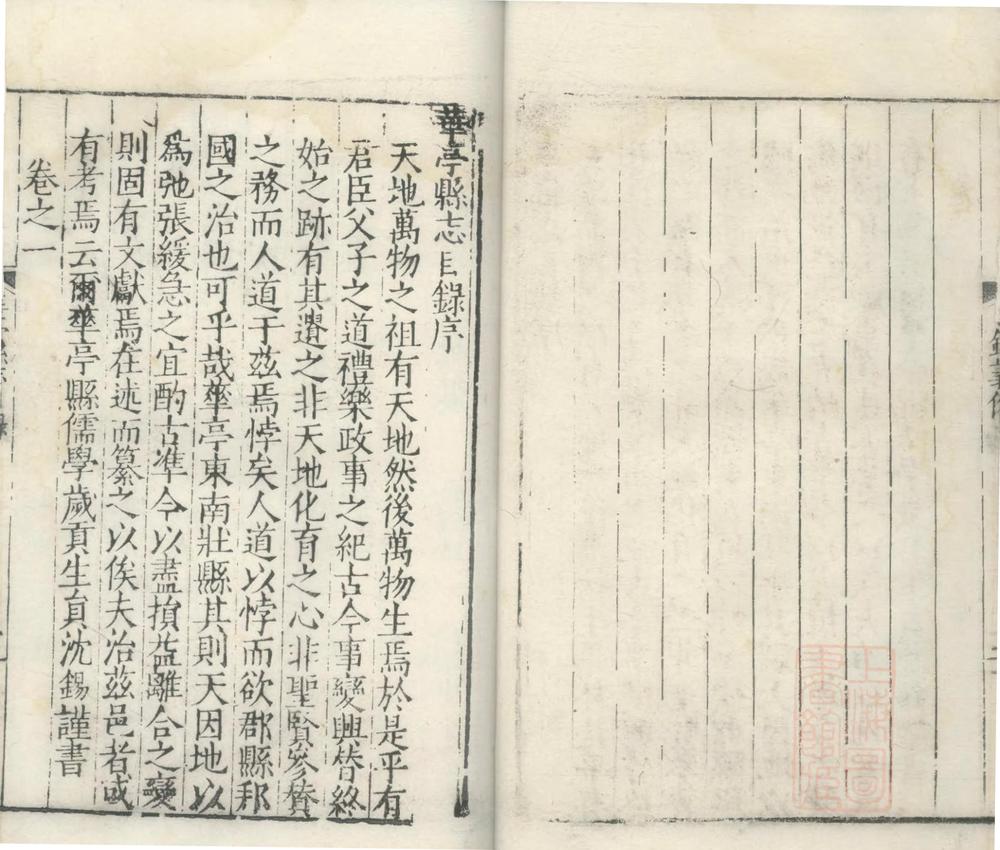 上海圖
書館藏
華亭縣志目錄序
天地萬物之祖有天地然後萬物生焉於是乎有
君臣父子之道禮樂政事之紀古今事變興替終
始之跡有其遺之非天地化育之心非聖賢參贊
之務而人道于茲焉悖矣人道以悖而欲郡縣邦
國之治也可乎哉華亭東南壯縣其則天因地以
爲弛張緩急之宜酌古準今以盡損益離合之變
則固有文獻焉在述而纂之以俟夫治茲邑者或
有考焉云爾華亭縣儒學歲貢生員沈錫謹書
卷之一